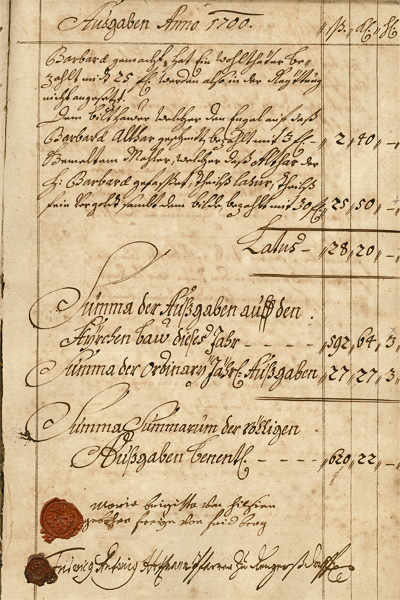 Ausgaben Anno 1700. ß. d. H
Barbaræ gemacht, hat ein wohlthäter be-
zahlt mit 25 fl. werden also in der Rayttung
nicht angesetzt.
Dem bilthawer welcher den Engel auf daß
Barbaræ Althar geschnitzt, bezahlt mit 3 fl. — 2 „ 40 „ —
Mahler, welcher daß Althar der
H: Barbaræ gefasset, theilß lasur, theilß
fein vergold sambt dem bilde, bezahlt mit 30 fl. 25 „ 50 „ —
Latus — 28 „ 20 „ —
Summa der Außgaben auff den
Kÿrchen baw dieses Jahr — — — — „ 592 „ 64 „ 3
Summa der Ordinary Jährl. Außgaben „ 27 „ 27 „ 3
Summa Summarum der völligen
Außgaben benentl. — — — — „ 620 „ 22 „ —
Maria brigitta von
freÿe von
Ludwig Pfarrer zu